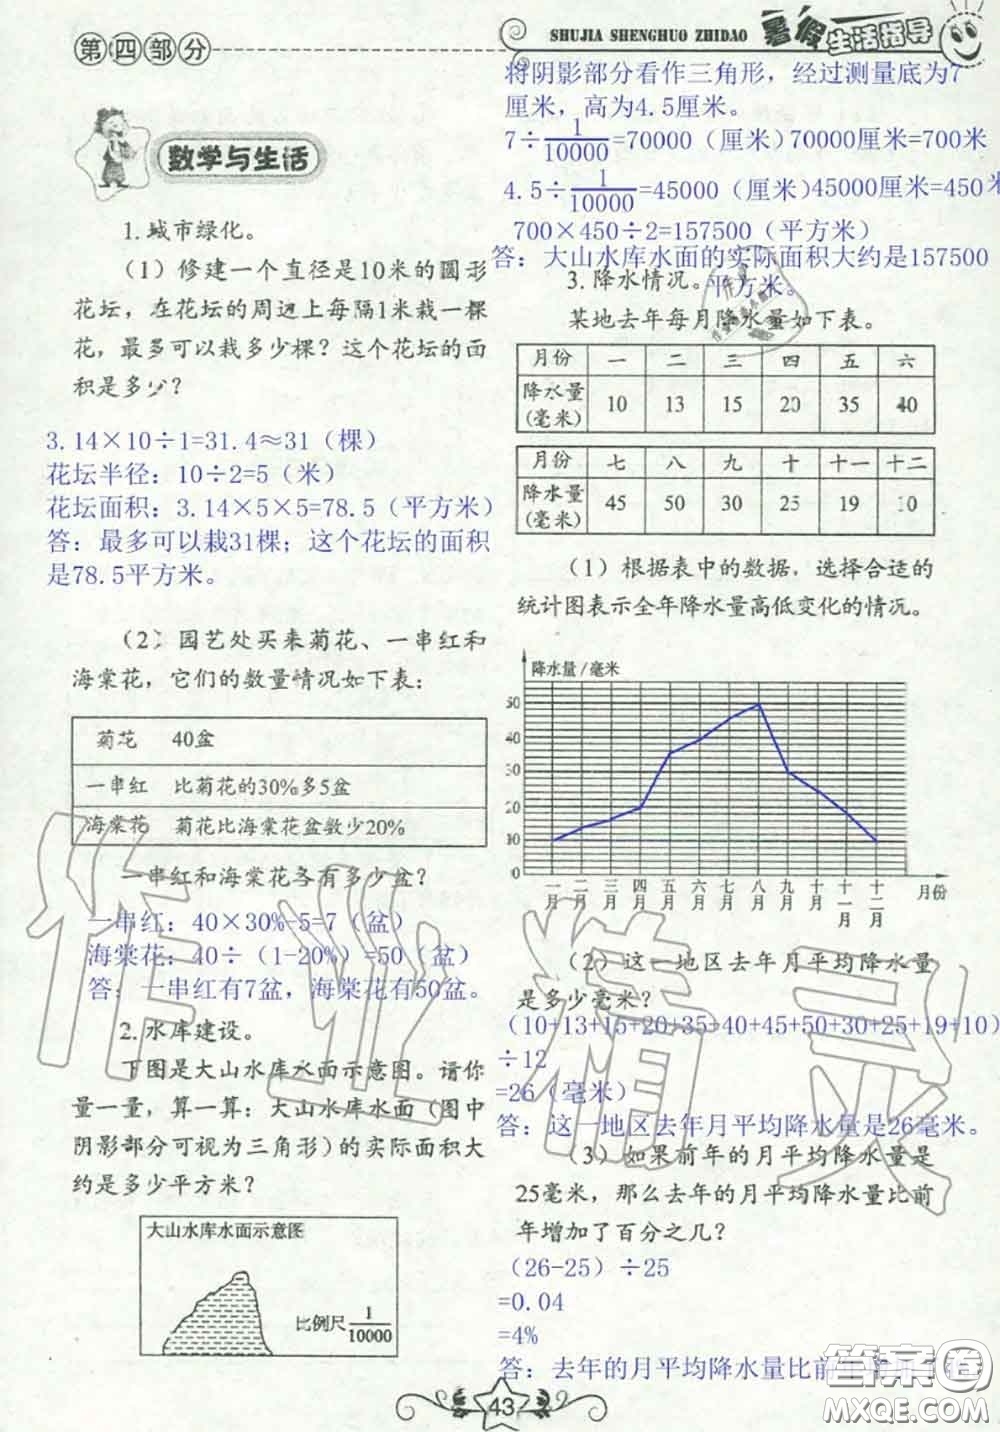 第四部分
SHUJIA SHENGHUO ZHIDAO 暑假生活指导
数学与生活
1.城市绿化。
(1) 修建一个直径是10米的圆形
花坛，在花坛的周边上每隔1米栽一棵
花，最多可以栽多少棵？这个花坛的面
积是多少？
3.14×10÷1=31.4≈31（棵）
花坛半径：10÷2=5（米）
花坛面积：3.14×5×5=78.5（平方米）
答：最多可以栽31棵；这个花坛的面积
是78.5平方米。
(2) 园艺处买来菊花、一串红和
海棠花，它们的数量情况如下表：
菊花 40盆
一串红 比菊花的30%多5盆
海棠花 菊花比海棠花盆数少20%
一串红和海棠花各有多少盆？
一串红：40×30%-5=7（盆）
海棠花：40÷（1-20%）=50（盆）
答：一串红有7盆，海棠花有50盆。
2.水库建设。
下图是大山水库水面示意图。请你
量一量，算一算：大山水库水面（图中
阴影部分可视为三角形）的实际面积大
约是多少平方米？
大山水库水面示意图
比例尺 1/10000
将阴影部分看作三角形，经过测量底为7
厘米，高为4.5厘米。
7÷1/10000=70000（厘米）70000厘米=700米
4.5÷1/10000=45000（厘米）45000厘米=450米
700×450÷2=157500（平方米）
答：大山水库水面的实际面积大约是157500
平方米。
3.降水情况。
某地去年每月降水量如下表。
月份 一 二 三 四 五 六
降水量(毫米) 10 13 15 20 35 40
月份 七 八 九 十 十一 十二
降水量(毫米) 45 50 30 25 19 10
(1) 根据表中的数据，选择合适的
统计图表示全年降水量高低变化的情况。
降水量/毫米
50
40
30
20
10
0
一月 二月 三月 四月 五月 六月 七月 八月 九月 十月 十一月 十二月 月份
(2) 这一地区去年月平均降水量
是多少毫米？
（10+13+15+20+35+40+45+50+30+25+19+10）
÷12
=26（毫米）
答：这一地区去年月平均降水量是26毫米。
(3) 如果前年的月平均降水量是
25毫米，那么去年的月平均降水量比前
年增加了百分之几？
（26-25）÷25
=0.04
=4%
答：去年的月平均降水量比前年
43
作业精灵
答案圈
MXQE.COM